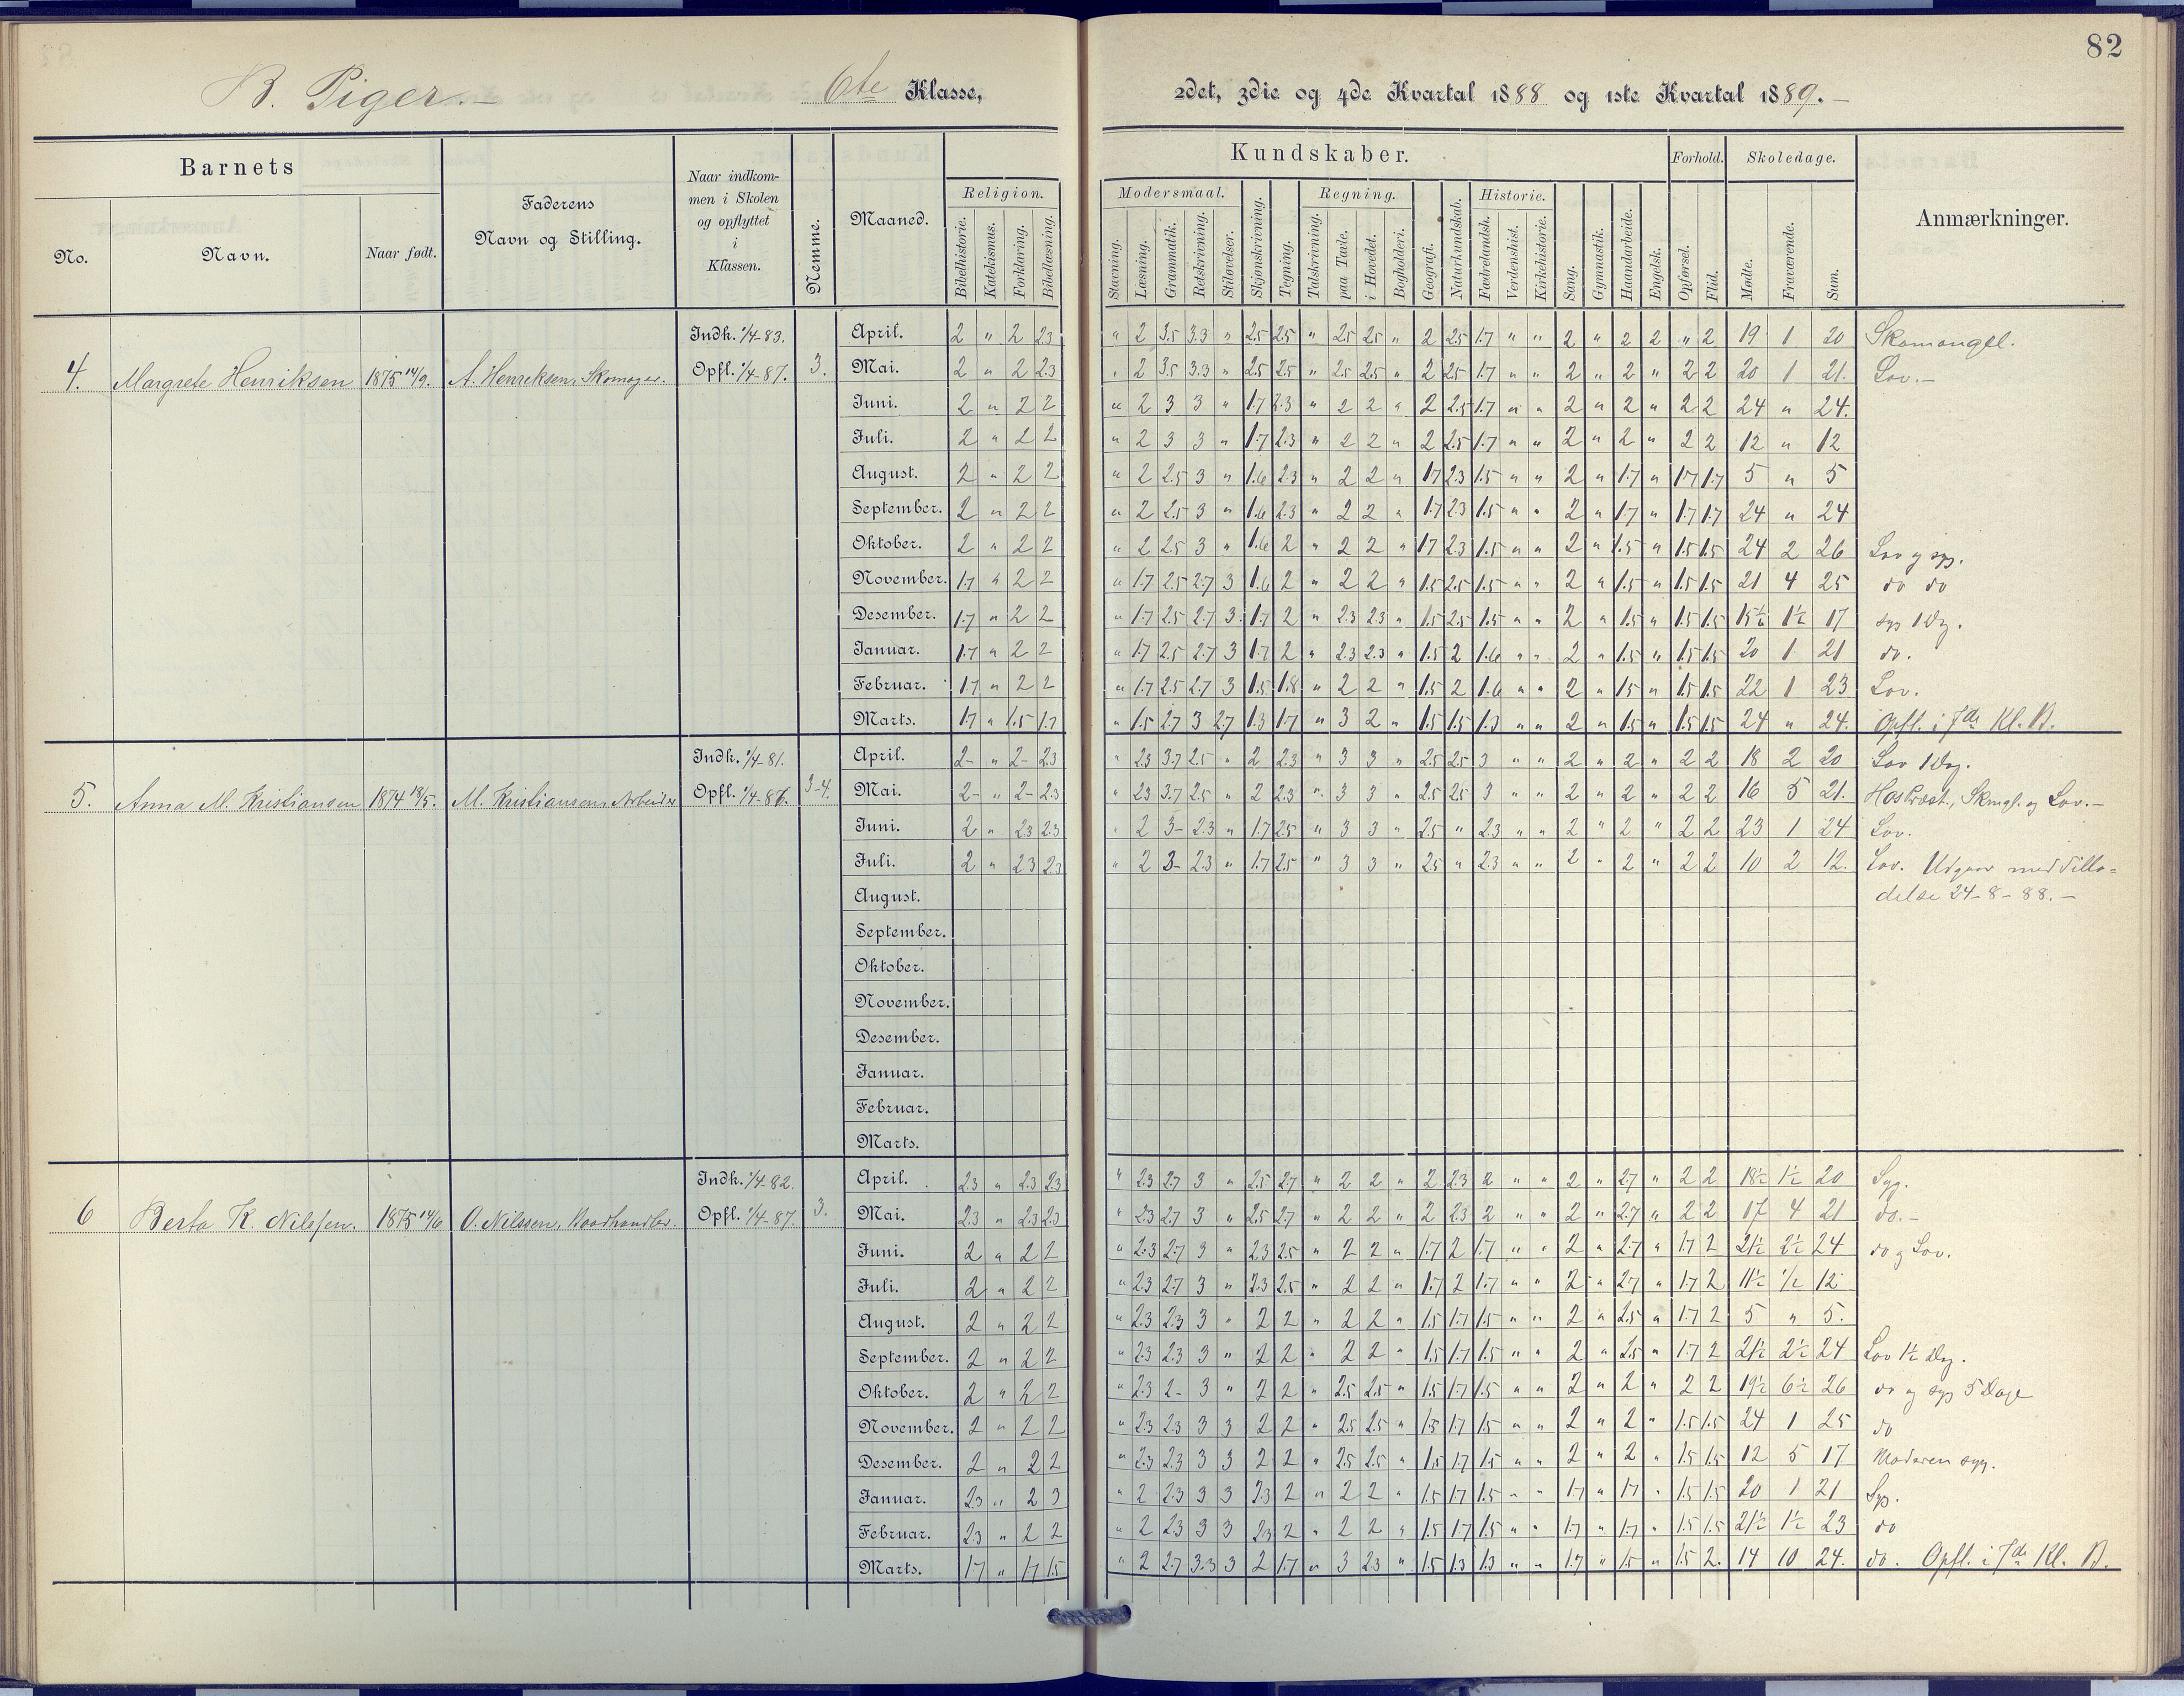 82
B. Piger. 6te Klasse, 2det, 3die og 4de Kvartal 1888 og 1ste Kvartal 1889.
Barnets
No.
Navn.
Naar født.
Faderens
Navn og Stilling.
Naar indkom-
men i Skolen
og opflyttet
i
Klassen.
Nemme.
Maaned.
Kundskaber.
Religion.
Bibelhistorie. Katekismus. Forklaring. Bibellæsning.
Modersmaal.
Stavning. Læsning. Grammatik. Retskrivning. Stiløvelser.
Skjønskrivning. Tegning.
Regning.
Talskrivning. paa Tavle. i Hovedet. Bogholderi.
Geografi. Naturkundskab.
Historie.
Fædrelandsh. Verdenshist. Kirkehistorie.
Sang. Gymnastik. Haandarbeide. Engelsk.
Forhold.
Opførsel. Flid.
Skoledage.
Mødte. Fraværende. Sum.
Anmærkninger.
4. Margrete Henriksen 1875 14/9. A. Henriksen, Skomager. Indk. 1/4-83. Opfl. 1/4-87. 3.
April. 2 " 2 2.3 " 2 3.5 3.3 " 2.5 2.5 " 2.5 2.5 " 2 2.5 1.7 " " 2 " 2 2 " 2 19 1 20 Skomangel.
Mai. 2 " 2 2.3 " 2 3.5 3.3 " 2.5 2.5 " 2.5 2.5 " 2 2.5 1.7 " " 2 " 2 " 2 2 20 1 21. Lov.-
Juni. 2 " 2 2 " 2 3 3 " 1.7 2.3 " 2 2 " 2 2.5 1.7 " " 2 " 2 " 2 2 24 " 24.
Juli. 2 " 2 2 " 2 3 3 " 1.7 2.3 " 2 2 " 2 2.5 1.7 " " 2 " 2 " 2 2 12 " 12
August. 2 " 2 2 " 2 2.5 3 " 1.6 2.3 " 2 2 " 1.7 2.3 1.5 " " 2 " 1.7 " 1.7 1.7 5 " 5
September. 2 " 2 2 " 2 2.5 3 " 1.6 2.3 " 2 2 " 1.7 2.3 1.5 " " 2 " 1.7 " 1.7 1.7 24 " 24
Oktober. 2 " 2 2 " 2 2.5 3 " 1.6 2 " 2 2 " 1.7 2.3 1.5 " " 2 " 1.5 " 1.5 1.5 24 2 26 Lov og syg.
November. 1.7 " 2 2 " 1.7 2.5 2.7 3 1.6 2 " 2 2 " 1.5 2.5 1.5 " " 2 " 1.5 " 1.5 1.5 21 4 25 do do
Desember. 1.7 " 2 2 " 1.7 2.5 2.7 3. 1.7 2 " 2.3 2.3 " 1.5 2.5 1.5 " " 2 " 1.5 " 1.5 1.5 15½ 1½ 17 syg 1 Dg.
Januar. 1.7 " 2 2 " 1.7 2.5 2.7 3 1.7 2 " 2.3 2.3 " 1.5 2 1.6 " " 2 " 1.5 " 1.5 1.5 20 1 21 do.
Februar. 1.7 " 2 2 " 1.7 2.5 2.7 3 1.5 1.8 " 2 2 " 1.5 2 1.6 " " 2 " 1.5 " 1.5 1.5 22 1 23 Lov.
Marts. 1.7 " 1.5 1.7 " 1.5 2.7 3 2.7 1.3 1.7 " 3 2 " 1.5 1.5 1.3 " " 2 " 1.5 " 1.5 1.5 24 " 24. Opfl. i 7de Kl. B.
5. Anna M. Kristiansen 1874 18/5. M. Kristiansen, Arbeider Indk. 1/4-81. Opfl. 1/4-87. 3-4.
April. 2- " 2- 2.3 " 2.3 3.7 2.5 " 2 2.3 " 3 3 " 2.5 2.5 3 " " 2 " 2 " 2 2 18 2 20 Lov 1 Dag.
Mai. 2- " 2- 2.3 " 2.3 3.7 2.5 " 2 2.3 " 3 3 " 2.5 2.5 3 " " 2 " 2 " 2 2 16 5 21. Hos Præst., Skmgl. og Lov.-
Juni. 2 " 2.3 2.3 " 2 3- 2.3 " 1.7 2.5 " 3 3 " 2.5 " 2.3 " " 2 " 2 " 2 2 23 1 24 Lov.
Juli. 2 " 2.3 2.3 " 2 3- 2.3 " 1.7 2.5 " 3 3 " 2.5 " 2.3 " " 2 " 2 " 2 2 10 2 12. Lov. Udgaar med Tilla-
August. delse 24-8-88.-
September.
Oktober.
November.
Desember.
Januar.
Februar.
Marts.
6 Berta K. Nilssen. 1875 14/6 O. Nilssen, Indk. 1/4-82. Opfl. 1/4-87. 3.
April. 2.3 " 2.3 2.3 " 2.3 2.7 3 " 2.5 2.7 " 2 2 " 2 2.3 2 " " 2 " 2.7 " 2 2 18½ 1½ 20 Syg.
Mai. 2.3 " 2.3 2.3 " 2.3 2.7 3 " 2.5 2.7 " 2 2 " 2 2.3 2 " " 2 " 2.7 " 2 2 17 4 21 do.-
Juni. 2 " 2 2 " 2.3 2.7 3 " 2.3 2.5 " 2 2 " 1.7 2 1.7 " " 2 " 2.7 " 1.7 2 21½ 2½ 24 do og Lov.
Juli. 2 " 2 2 " 2.3 2.7 3 " 2.3 2.5 " 2 2 " 1.7 2 1.7 " " 2 " 2.7 " 1.7 2 11½ 1/2 12
August. 2 " 2 2 " 2.3 2.3 3 " 2 2 " 2 2 " 1.5 1.7 1.5 " " 2 " 2.5 " 1.7 2 5 " 5.
September. 2 " 2 2 " 2.3 2.3 3 " 2 2 " 2 2 " 1.5 1.7 1.5 " " 2 " 2.5 " 1.7 2 21½ 2½ 24 Lov 1½ Dag.
Oktober. 2 " 2 2 " 2.3 2- 3 " 2 2 " 2.5 2.5 " 1.5 1.7 1.5 " " 2 " 2 " 2 2 19½ 6½ 26 do og syg 5 Dage
November. 2 " 2 2 " 2.3 2.3 3 3 2 2 " 2.5 2.5 " 1.5 1.7 1.5 " " 2 " 2 " 1.5 1.5 24 1 25 do
Desember. 2 " 2 2 " 2.3 2.3 3 3 2 2 " 2.5 2.5 " 1.5 1.7 1.5 " " 2 " 2 " 1.5 1.5 12 5 17 Moderen syg.
Januar. 2.3 " 2 3 " 2 2.3 3 3 2.3 2 " 2 2 " 1.5 1.7 1.5 " " 1.7 " 1.7 " 1.5 1.5 20 1 21 Syg.
Februar. 2.3 " 2 2 " 2 2.3 3 3 2.3 2 " 2 2 " 1.5 1.7 1.5 " " 1.7 " 1.7 " 1.5 1.5 21½ 1½ 23 do
Marts. 1.7 " 1.7 1.5 " 2 2.7 3.3 3 2 1.7 " 3 2.3 " 1.5 1.3 1.3 " " 1.7 " 1.5 " 1.5 2. 14 10 24. do. Opfl. i 7de Kl. B.